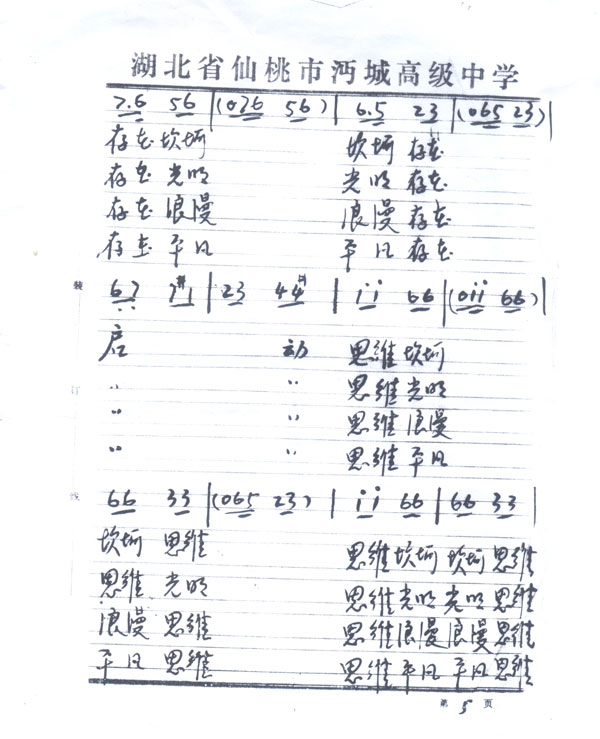 湖北省仙桃市沔城高级中学
7.6 56 |(076 56)| 6.5 23 |(065 23)|
存在坎坷 坎坷 存在
存在 光明 光明 存在
存在 浪漫 浪漫 存在
存在 平凡 平凡 存在
装 67 7#1 | 23 44 | ii 66 |(0ii 66)|
启 动 思维 坎坷
订 〃 〃 思维 光明
〃 〃 思维 浪漫
〃 〃 思维 平凡
线 66 33 |(065 23)| ii 66 | 66 33 |
坎坷 思维 思维坎坷 坎坷 思维
思维 光明 思维光明 光明 思维
浪漫 思维 思维浪漫 浪漫 思维
平凡 思维 思维平凡 平凡 思维
第 5 页